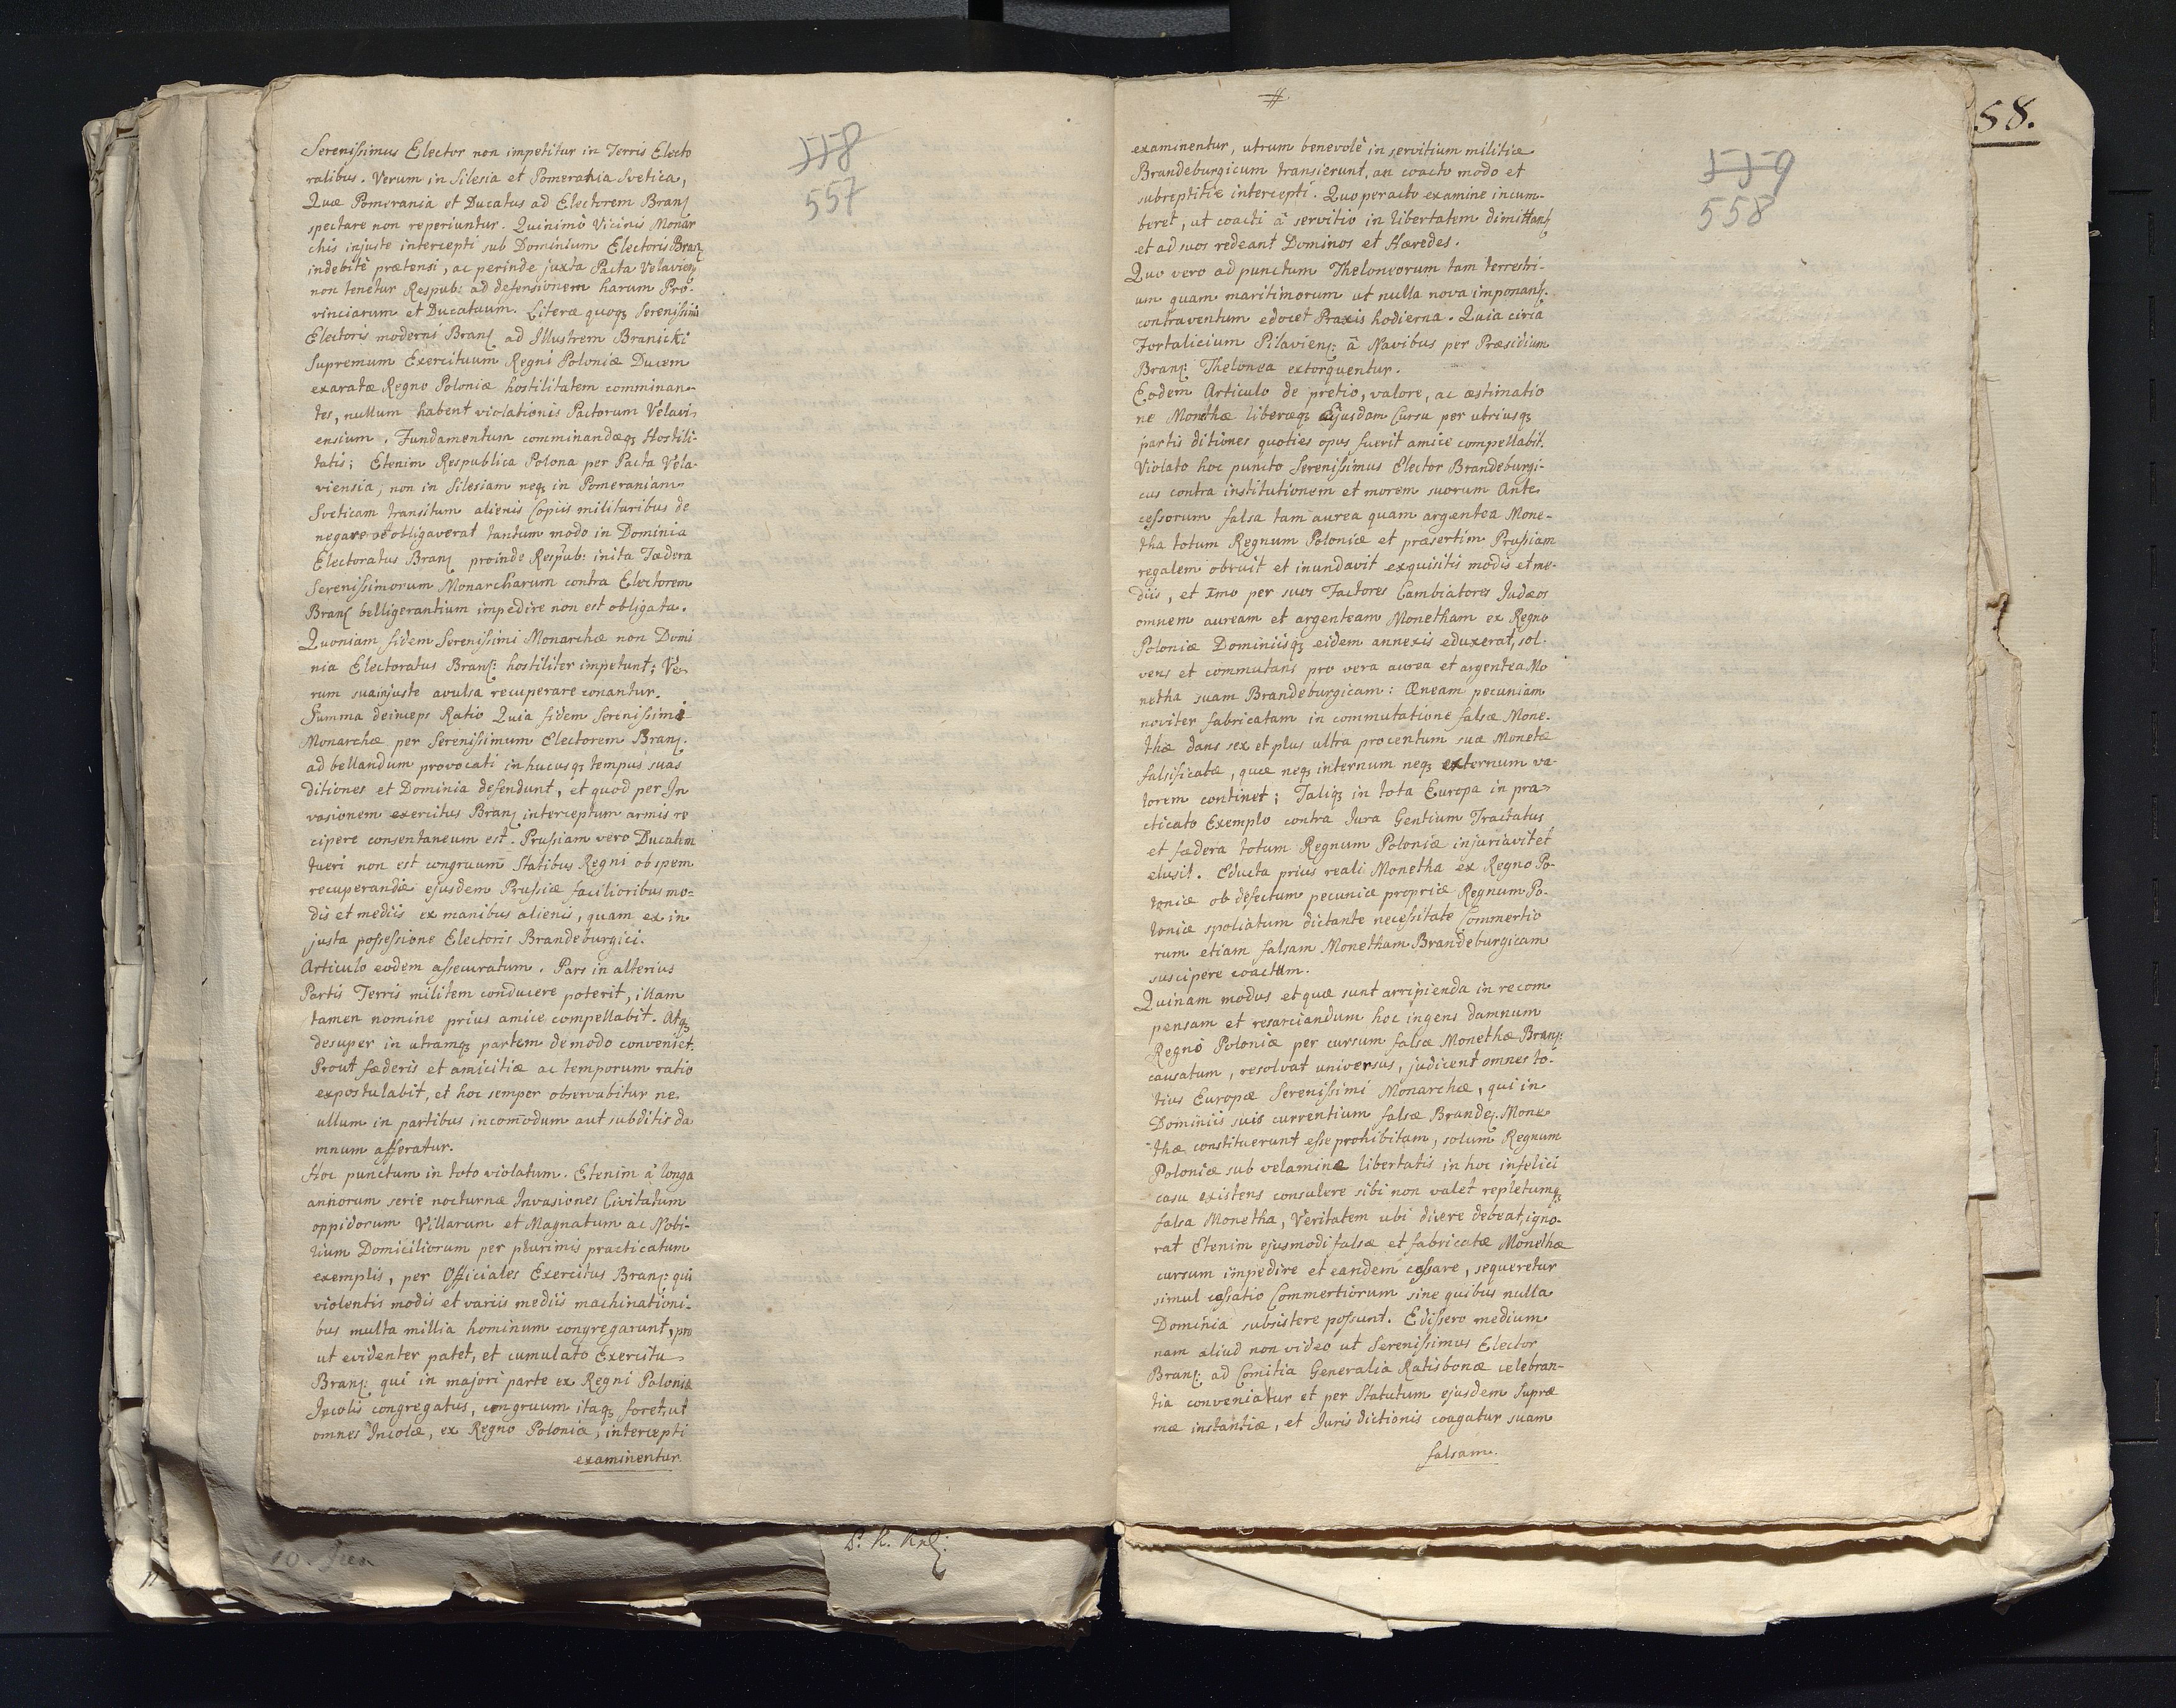 Serenissimus Elector non impetitur in Terris Electo
ralibus. Verum in Silesia et Pomerania Svetica,
Quæ Pomerania et Ducatus ad Electorem Bran:
spectare non reperiuntur. Quinimò Vicinis Monar
chis injuste intercepti sub Dominium Electoris Bran:
indebitè prætensi, ac perinde juxta Pacta Velavien:
non tenetur Respub: ad defensionem harum Pro-
vinciarum et Ducatuum. Literæ quoq3 Serenissimi
Electoris moderni Bran: ad Illustrem Branicki
Supremum Exercituum Regni Poloniæ Ducem
exaratæ Regno Poloniæ hostilitatem comminan-
tes, nullum habent violationis Pactorum Velavi-
ensium. Fundamentum comminandæq3 Hostili-
tatis; Etenim Respublica Polona per Pacta Vela-
viensia, non in Silesiam neq3 in Pomeraniam
Sveticam transitum alienis Copiis militaribus de
negare se obligaverat tantum modo in Dominia
Electoratus Bran: proinde Respub: inita Fœdera
Serenissimorum Monarcharum contra Electorem
Bran: belligerantium impedire non est obligata.
Quoniam iidem Serenissimi Monarchæ non Domi
nia Electoratus Bran: hostiliter impetunt; Ve-
rum sua injuste avulsa recuperare conantur.
Summa deinceps Ratio Quia iidem Serenissimi
Monarchæ per Serenissimum Electorem Bran:
ad bellandum provocati in hucusq3 tempus suas
ditiones et Dominia defendunt, et quod per In
vasionem exercitus Bran: interceptum armis re
cipere consentaneum est. Prussiam vero Ducalem
tueri non est congruum Statibus Regni ob spem
recuperandæ ejusdem Prussiæ facilioribus mo=
dis et mediis ex manibus alienis, quam ex in
justa possessione Electoris Brandeburgici.
Articulo eodem assecuratum. Pars in alterius
Partis Terris militem conducere poterit, illam
tamen nomine prius amice compellabit. Atq3
desuper in utramq3 partem de modo conveniet.
Prout fæderis et amicitiæ ac temporum ratio
expostulabit, et hoc semper observabitur ne
ullum in partibus incom̄odum aut subditis da
mnum afferatur.
Hoc punctum in toto violatum. Etenim à longa
annorum serie nocturnæ Invasiones Civitatum
oppidorum Villarum et Magnatum ac Nobi-
lium Domiciliorum per plurimis practicatum
exemplis, per Officiales Exercitus Bran: qui
violentis modis et variis mediis machinationi-
bus multa millia hominum congregarunt, pro
ut evidenter patet, et cumulato Exercitu
Bran: qui in majori parte ex Regni Poloniæ
Incolis congregatus, congruum itaq3 foret, ut
omnes Incolæ, ex Regno Poloniæ, intercepti
examinentur
558
557
10. Jun
P. K. Krl:
#
examinentur, utrum benevolè in servitium militiæ
Brandeburgicum transierunt, an coacto modo et
subreptitiè intercepti. Quo peracto examine incum-
beret, ut coacti à servitio in libertatem dimittan:
et ad suos redeant Dominos et Hæredes.
Quo vero ad punctum Theloneorum tam terrestri-
um quam maritimorum ut nulla nova imponan:
contraventum edocet Praxis hodierna. Quia circa
Fortalicium Pilavien: à Navibus per Præsidium
Bran: Thelonea extorquentur.
Eodem Articulo de pretio, valore, ac æstimatio
ne Monethæ liberæq3 Ejusdam Cursu per utriusq3
partis ditiones quoties opus fuerit amice compellabit.
Violato hoc puncto Serenissimus Elector Brandeburgi-
cus contra institutionem et morem suorum Ante
cessorum falsa tam aurea quam argentea Mone-
tha totum Regnum Poloniæ et præsertim Prussiam
regalem obruit et inundavit exquisitis modis et me-
diis, et Imo per suos Factores Cambiatores Judæos
omnem auream et argenteam Monetham ex Regno
Poloniæ Dominiisq3 eidem annexis eduxerat, sol-
vens et commutans pro vera aurea et argentea Mo
netha suam Brandeburgicam: Æneam pecuniam
noviter fabricatam in commutatione falsæ Mone-
thæ dans sex et plus ultra procentum suæ Monetæ
falsificatæ, quæ neq3 internum neq3 externum va-
lorem continet; Taliq3 in tota Europa in pra-
cticato Exemplo contra Jura Gentium Tractatus
et fædera totum Regnum Poloniæ injuriavit et
elusit. Educta prius reali Monetha ex Regno Po-
loniæ ob defectum pecuniæ propriæ Regnum Po-
loniæ spoliatum dictante necessitate Commertio
rum etiam falsam Monetham Brandeburgicam
suscipere coactum.
Quinam modus et quæ sunt arripienda in recom
pensam et resarciandum hoc ingens damnum
Regno Poloniæ per cursum falsæ Monethæ Bran:
causatum, resolvat universus, judicent omnes to-
tius Europæ Serenissimi Monarchæ, qui in
Dominiis suis currentium falsæ Brande: Mone
thæ constituerunt esse prohibitam, solum Regnum
Poloniæ sub velamine libertatis in hoc infelici
casu existens consulere sibi non valet repletumq3
falsa Monetha, Veritatem ubi dicere debeat, igno-
rat Etenim ejusmodi falsæ et fabricatæ Monethæ
cursum impedire et eandem cessare, sequeretur
simul cessatio Commertiorum sine quibus nulla
Dominia subsistere possunt. Edissero medium
nam aliud non video ut Serenissimus Elector
Bran: ad Comitia Generalia Ratisbonæ celebran-
tia conveniatur et per Statutum ejusdem Supræ
mæ instantiæ, et Juris dictionis coagatur suam
falsam.
559
558
58.